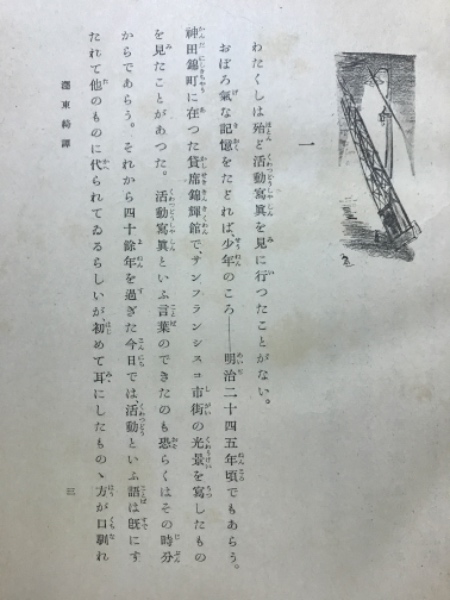 一
わたくしは殆ど活動寫眞を見に行つたことがない。
おぼろ氣な記憶をたどれば、少年のころ――明治二十四五年頃でもあらう。
神田錦町に在つた貸席錦輝館で、サンフランシスコ市街の光景を寫したもの
を見たことがあつた。活動寫眞といふ言葉のできたのも恐らくはその時分
からであらう。それから四十餘年を過ぎた今日では、活動といふ語は既にす
たれて他のものに代られてゐるらしいが、初めて耳にしたものゝ方が口馴れ
濹東綺譚
三